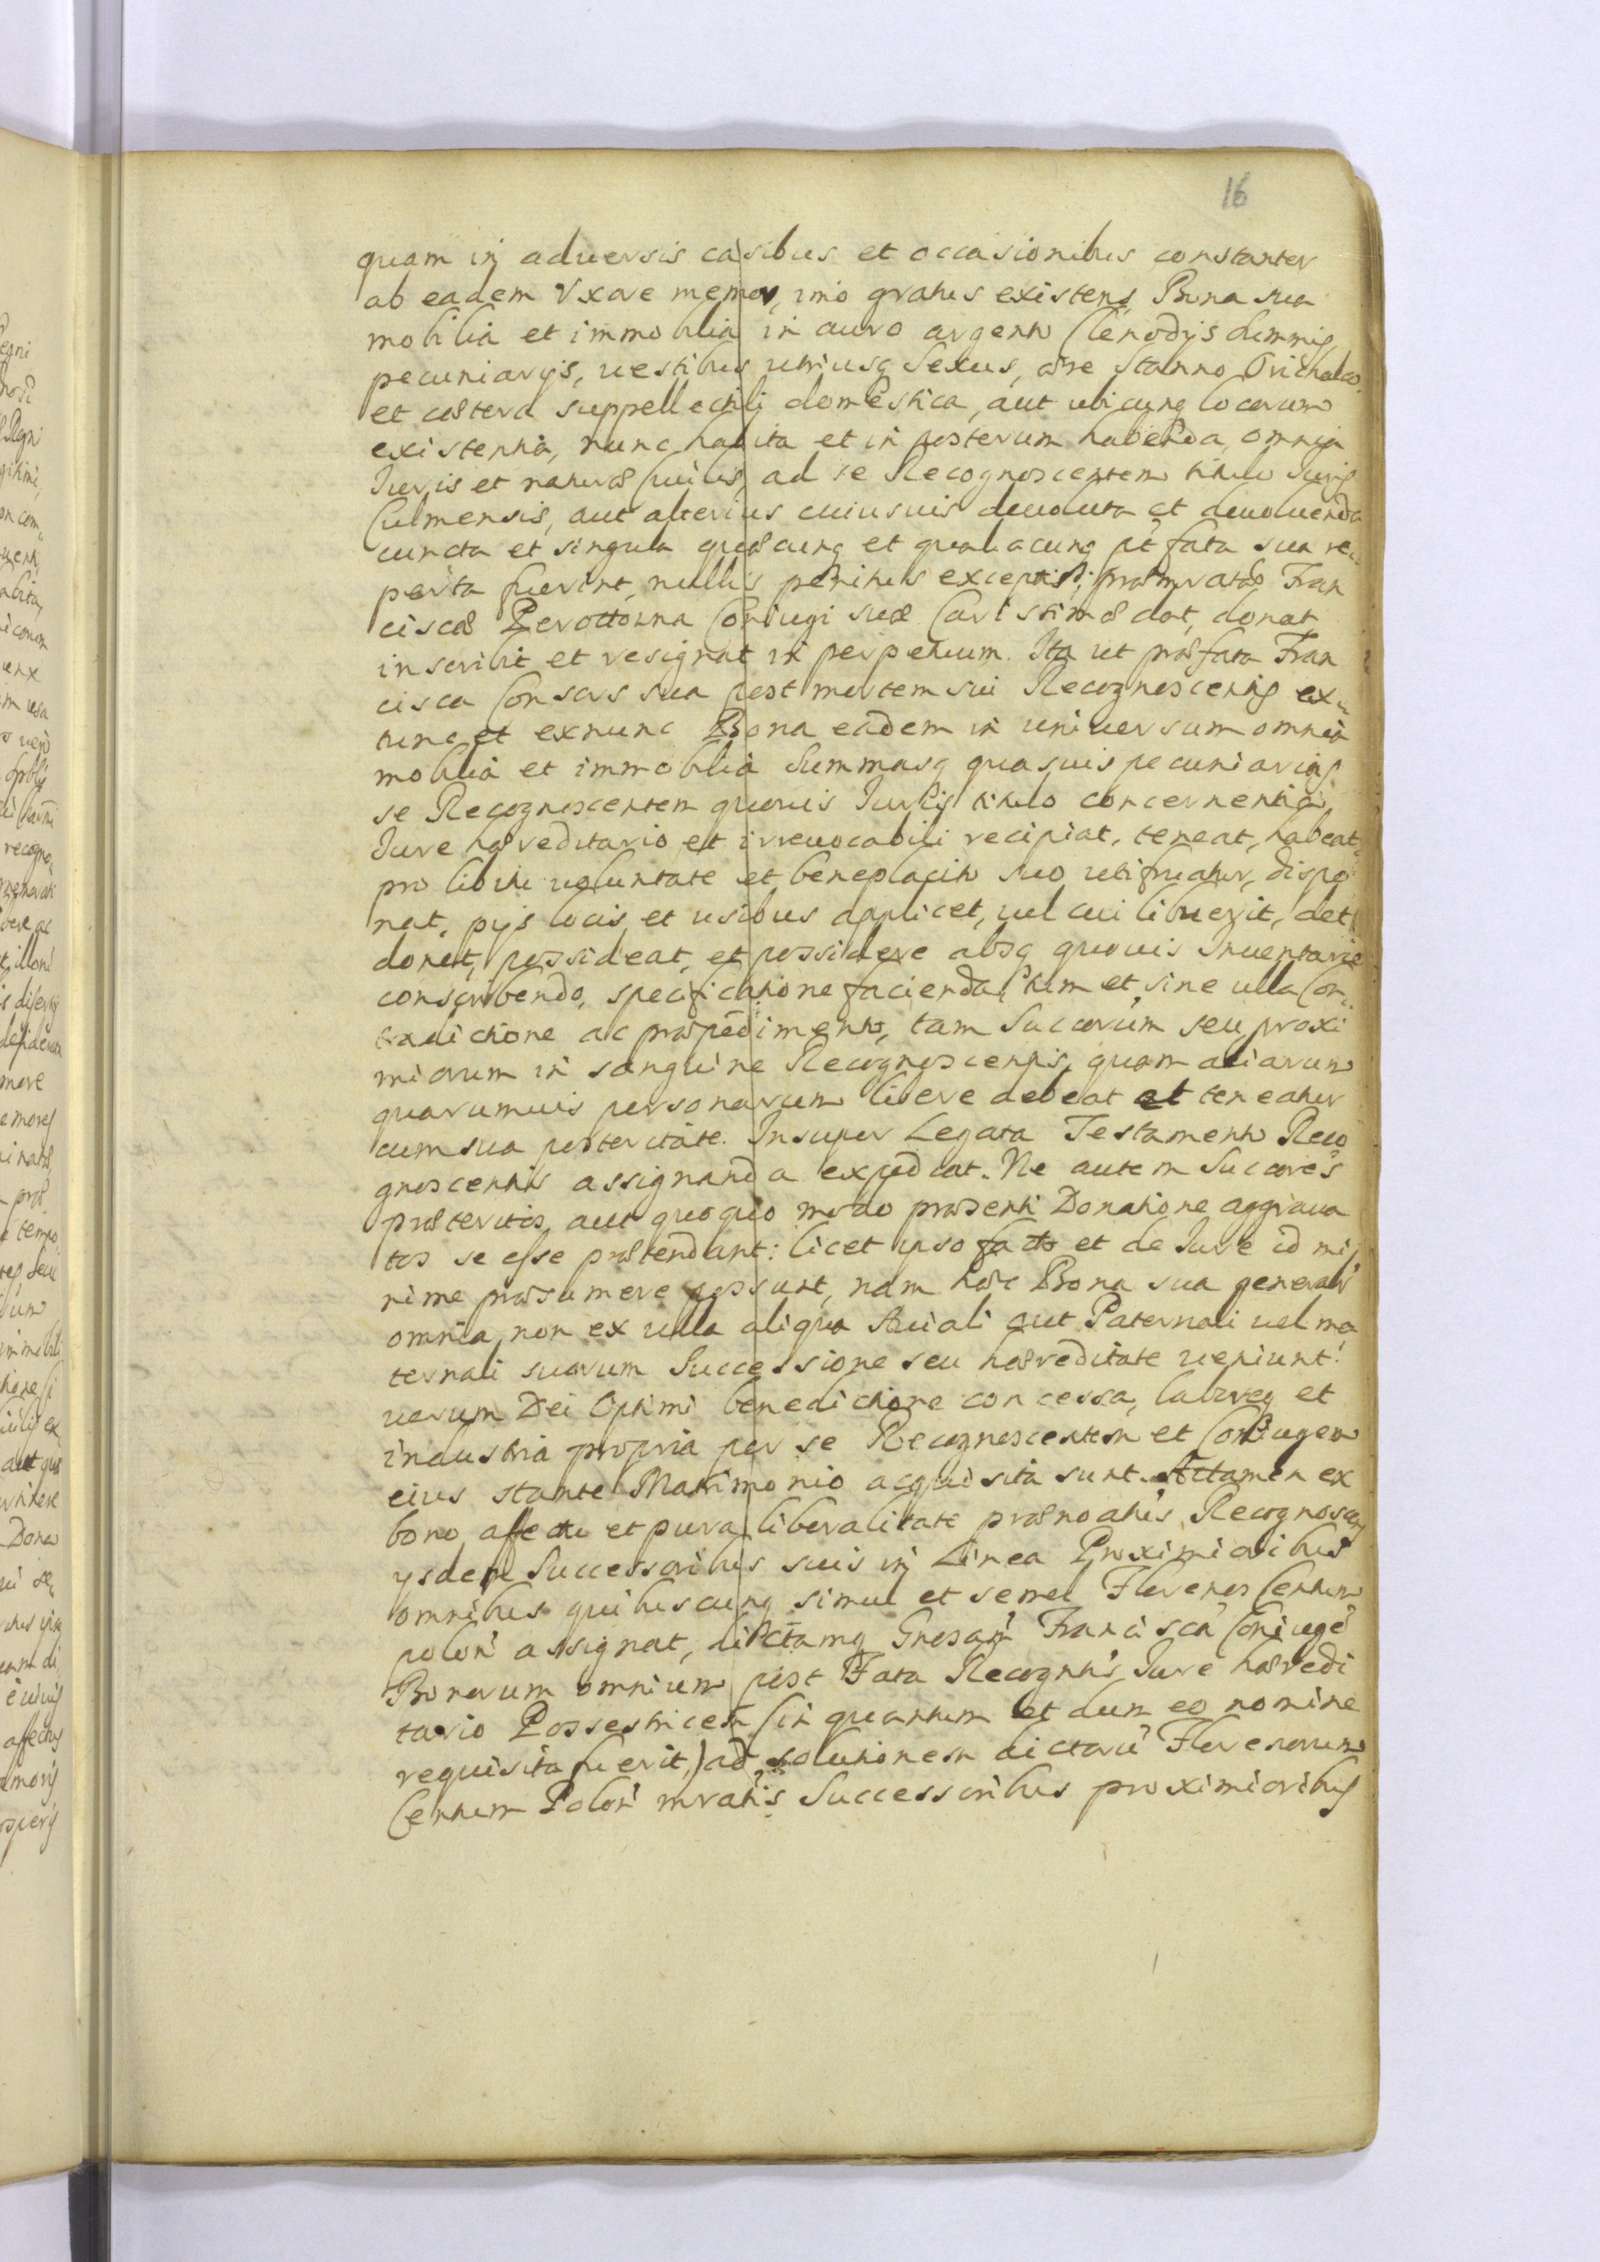 16
quam in adversis casibus et occasionibus constanter
ab eadem Uxore memor, imo gratus existens, Bona sua
mobilia et immobilia in auro argento Clenodijs Summis
pecuniarijs, vestibus utriusq Sexus, aere Stanno Orichalco
et caetera suppellectili domestica, aut ubicunq locorum
existentia, nunc habita et in posterum habenda, omnia
Iuris et naturae Civilis, ad se Recognoscentem titulo Iuris
Culmensis, aut alterius cuiusvis devoluta et devolvenda
cuncta et singula quaecunq et qualiacunq pt fata sua re
perta fuerint, nullis penitus exceptis, praemratae Fran
ciscae Perottouna Coniugi suae Caristimae dat, donat
inscribit et resignat in perpetuum. Ita ut praefata Fran
cisca Consors sua post mortem sui Recognoscentis ex
tunc et exnunc Bona eadem in universum omnia
mobilia et immobilia Summasq quasvis pecuniarias
se Recognoscentem quovis Iuris titulo concernentia,
Iure haereditario et irrevocabili recipiat, teneat, habeat
pro libitu voluntate et beneplacito suo utifruatur, dispo
nat, pijs locis et usibus applicet, vel cui libuerit, det
donet, possideat, et possidere absq quovis Inventario
conscribendo, specificatione facienda tum et sine ulla Con
tradictione ac praepedimento, tam Succorum seu proxi
miorum in sanguine Recognoscentis, quam aliarum
quarumvis personarum libere debeat et teneatur
cum sua posteritate. Insuper Legata Testamento Reco
gnoscentis assignanda expediat. Ne autem Succores
praeteritos, aut quoquo modo praesenti Donatione aggrava
tos se esse praetendant: licet ipso facto et de Iure id mi
nime praesumere possunt, nam haec Bona sua generalr
omnia, non ex ulla aliqua Aviali aut Paternali vel ma
ternali suorum Successione seu haereditate veniunt:
verum Dei Optimi benedictione concessa, laboreq et
industria propria per se Recognoscentem et Coniugem
eius stante Matrimonio acquisita sunt. Attamen ex
bono affectu et pura liberalitate praenoatus Recognoscens
ysdem Successoribus suis in Linea Proximioribus
omnibus quibuscunq simul et semel Florenos Centum
polon assignat, dictamq Gnosam Franciscam Coniuge
Bonorum omnium post Fata Recogntis Iure haeredi
tario Possestricem (in quantum et dum eo nomine
requisita fuerit,) ad solutionem dictoru Florenorum
Centum Polon mratis Successoribus proximioribus